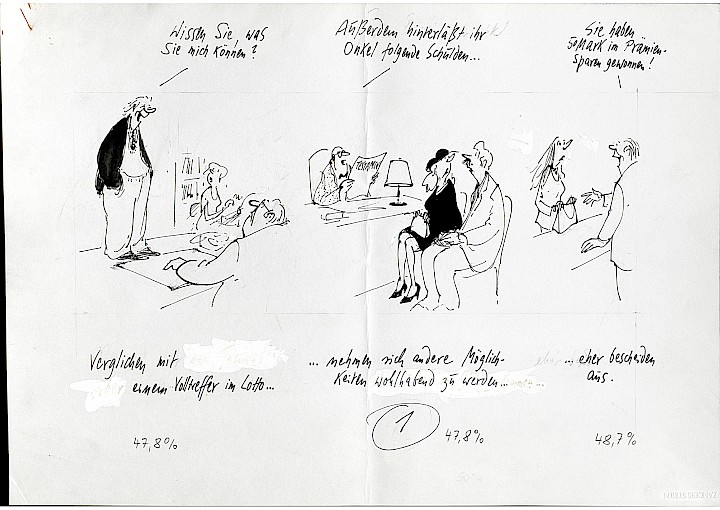 Wissen Sie, was
Sie mich können?
Außerdem hinterläßt ihr
Onkel folgende Schulden...
Sie haben
50 Mark im Prämien-
sparen gewonnen!
TESTAMENT
Verglichen mit
einem Volltreffer im Lotto...
... nehmen sich andere Möglich-
keiten wohlhabend zu werden...
... eher bescheiden
aus.
47,8%
1
47,8%
48,7%